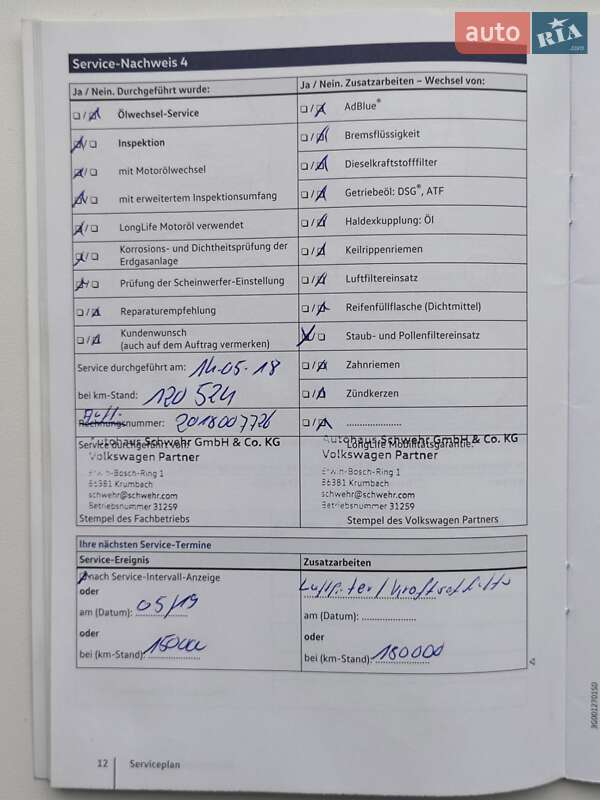 auto RIA .com
Service-Nachweis 4
Ja / Nein. Durchgeführt wurde:
Ölwechsel-Service
Inspektion
mit Motorölwechsel
mit erweitertem Inspektionsumfang
LongLife Motoröl verwendet
Korrosions- und Dichtheitsprüfung der
Erdgasanlage
Prüfung der Scheinwerfer-Einstellung
Reparaturempfehlung
Kundenwunsch
(auch auf dem Auftrag vermerken)
Service durchgeführt am: 14.05.18
bei km-Stand: 120 524
Auft.
Rechnungsnummer: 2018007726
Service durchgeführt von:
Autohaus Schwehr GmbH & Co. KG
Volkswagen Partner
Erwin-Bosch-Ring 1
86381 Krumbach
schwehr@schwehr.com
Betriebsnummer 31259
Stempel des Fachbetriebs
Ja / Nein. Zusatzarbeiten – Wechsel von:
AdBlue®
Bremsflüssigkeit
Dieselkraftstofffilter
Getriebeöl: DSG®, ATF
Haldexkupplung: Öl
Keilrippenriemen
Luftfiltereinsatz
Reifenfüllflasche (Dichtmittel)
Staub- und Pollenfiltereinsatz
Zahnriemen
Zündkerzen
.....................
LongLife Mobilitätsgarantie:
Autohaus Schwehr GmbH & Co. KG
Volkswagen Partner
Erwin-Bosch-Ring 1
86381 Krumbach
schwehr@schwehr.com
Betriebsnummer 31259
Stempel des Volkswagen Partners
Ihre nächsten Service-Termine
Service-Ereignis
nach Service-Intervall-Anzeige
oder
am (Datum): 05/19
oder
bei (km-Stand):
Zusatzarbeiten
am (Datum): ..................
oder
bei (km-Stand): 180000
3G0012701SD
12 Serviceplan